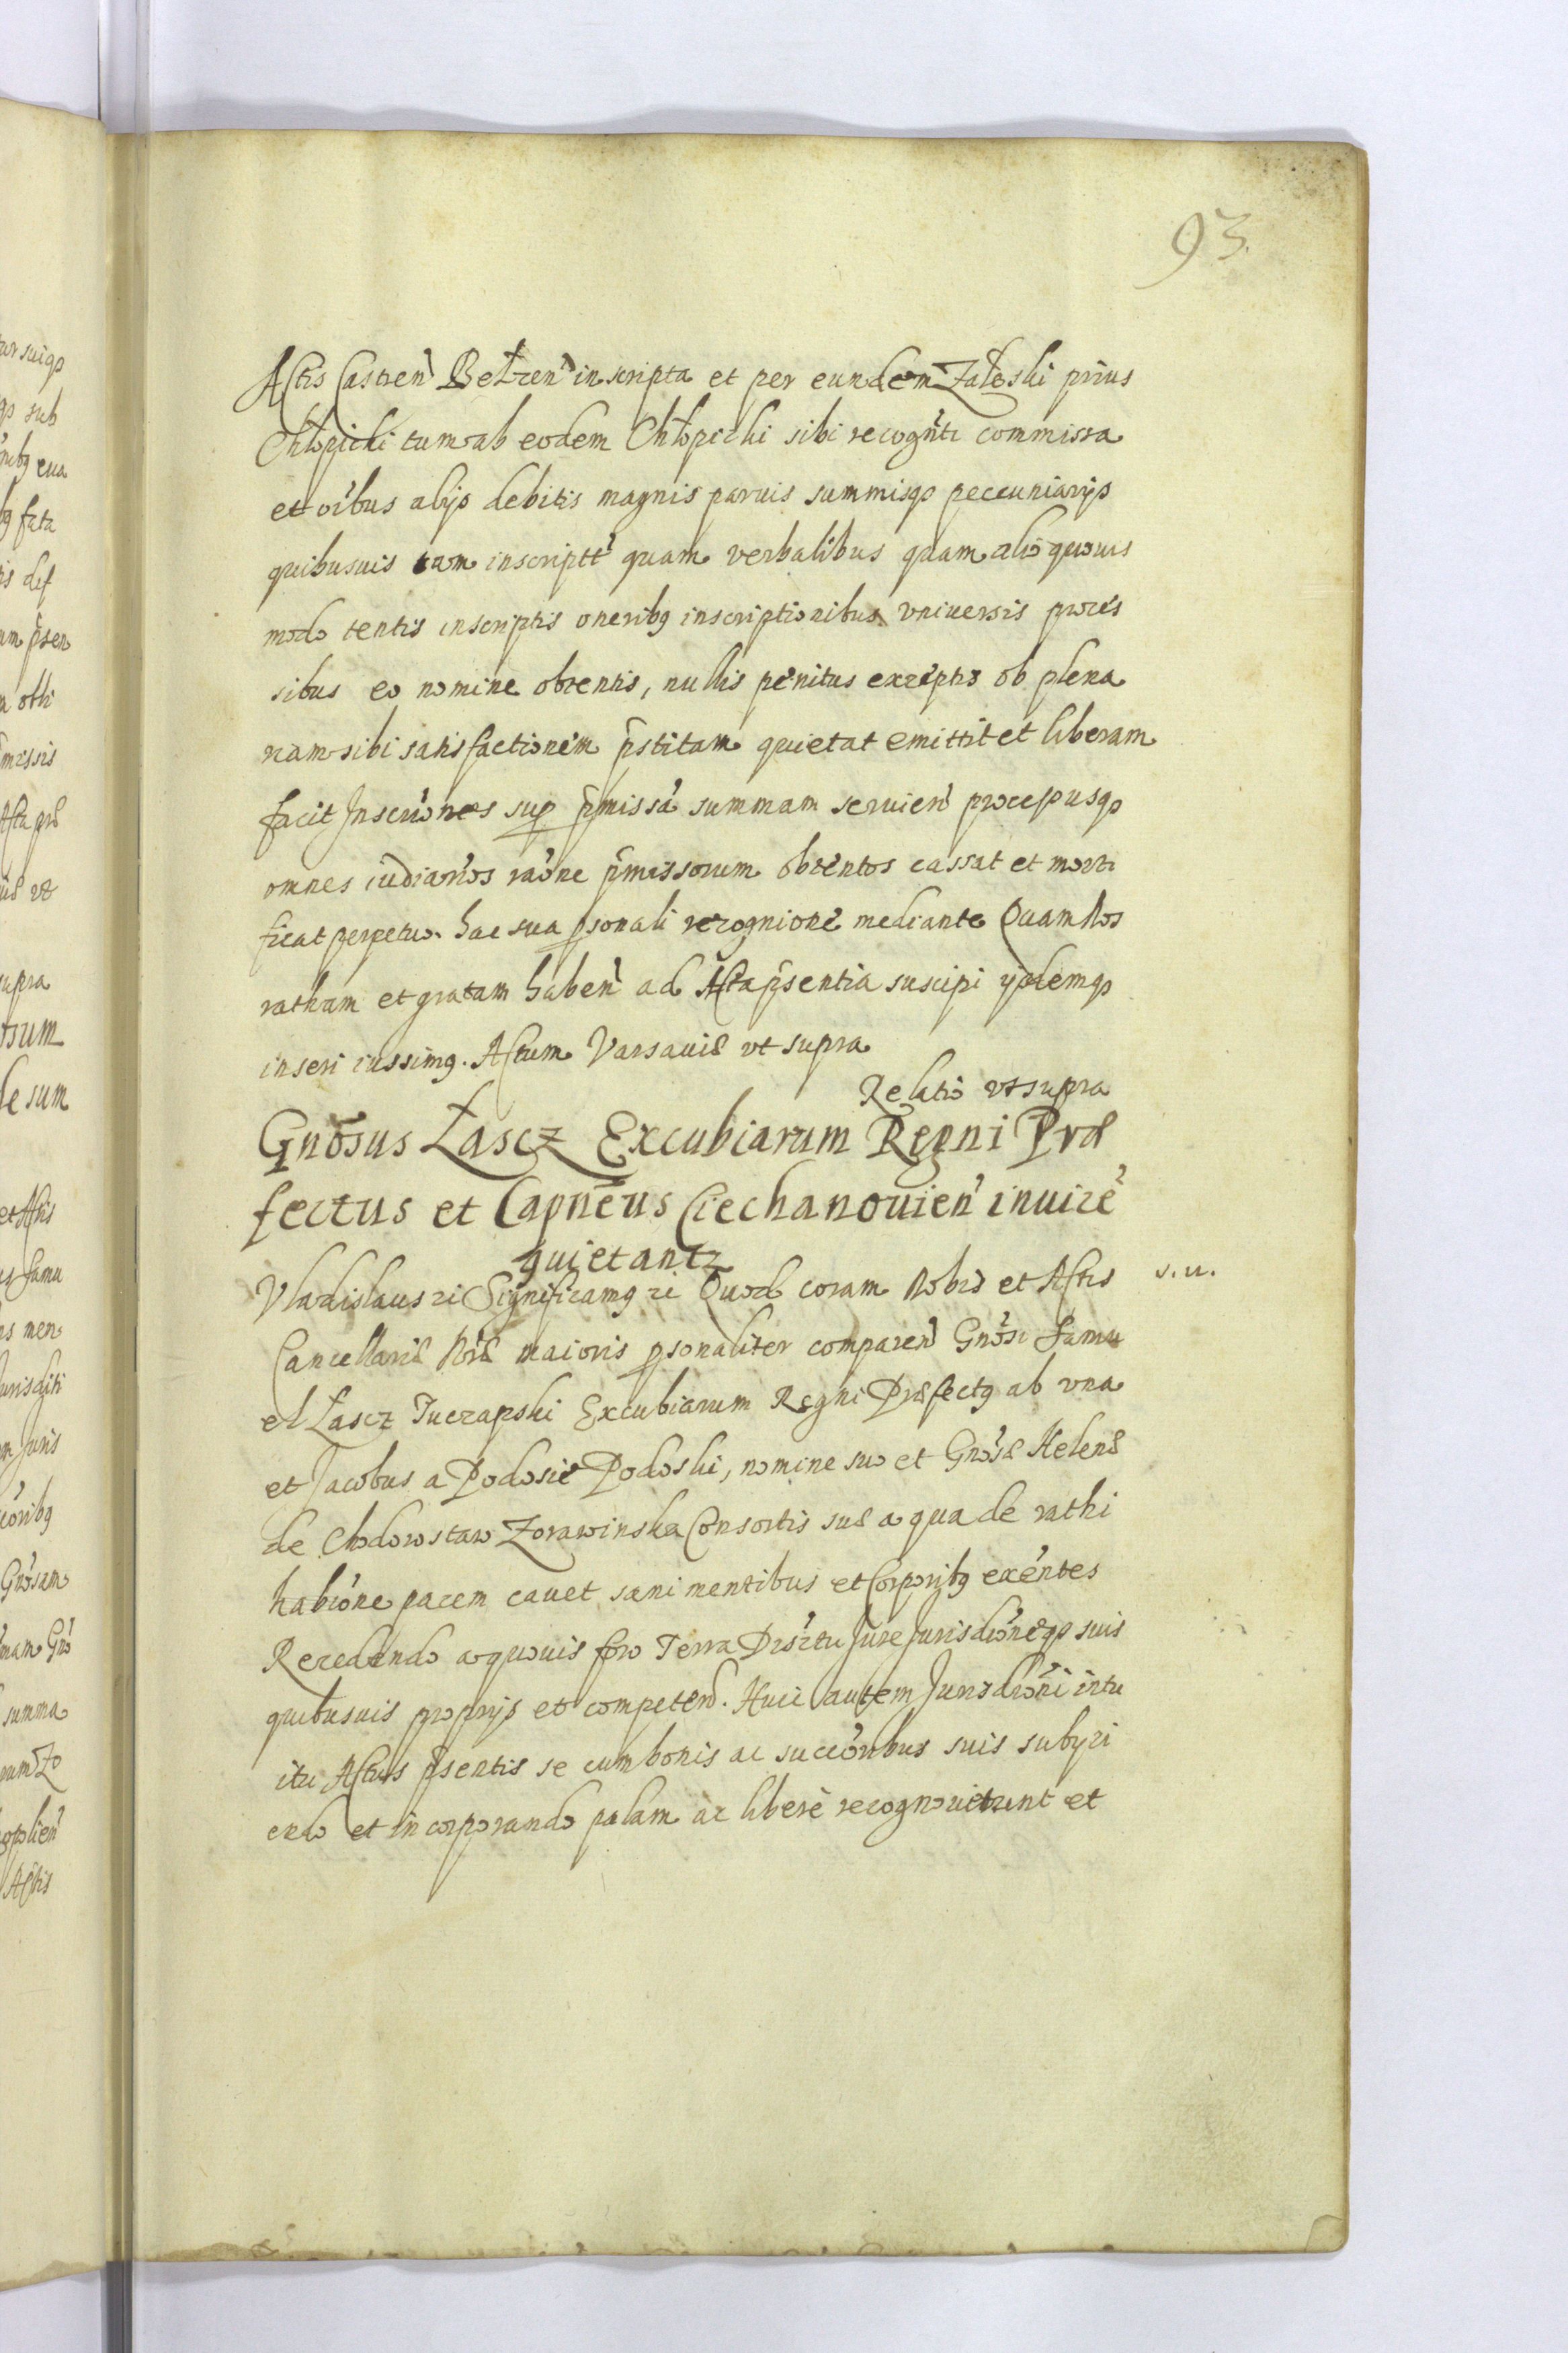 93.
Actis Castren̄ Bełzen̄ inscripta et per eundem Zaleski prius
Chłopicki tum ab eodem Chłopicki sibi recogn̄ti commissa
et oi̅bus alijs debitis magnis paruis summisq₃ peccuniarijs
quibusuis tam inscriptt̄ quam verbalibus quam alio quouis
modo tentis inscriptis oneribꝰ inscriptionibus vniuersis proces
sibus eo nomine obtentis, nullis penitus exceptis ob plena
riam sibi satisfactionem p̄stitam quietat emittit et liberam
facit Inscrio̅nes sup p̄missa̅ summam seruien̄ processusq₃
omnes iudiario̅s rao̅ne p̄missorum obtentos cassat et morti
ficat perpetuo. hac sua p̱sonali recognione mediante Quam Nos
ratham et gratam haben̄ ad Acta p̄sentia suscipi ijsdemq₃
inseri iussimꝰ. Actum Varsauiæ vt supra
Relatio vt supra
Gno̅sus Łascz Excubiarum Regni Præ
fectus et Capne̅us Ciechanouien̄ inuice̅
quietantz
Vladislaus zi Significamꝰ zi Quod coram Nobis et Actis
s. u.
Cancellariæ Nr̄æ maioris p̱sonaliter comparen̄ Gno̅si Samu
el Łascz Tuczapski Excubiarum Regni Præfectꝰ ab vna
et Jacobus a Podosie Podoski, nomine suo et Gno̅sæ Helenæ
de Chodorostaw Zorawinska Consortis suæ a qua de rathi
habio̅ne pacem cauet sani mentibus et Corporibꝰ exe̅ntes
Recedendo a quouis foro Terra Distr̄tu Jure Jurisdio̅neq₃ suis
quibusuis proprijs et competen̄. Huic autem Jurisdio̅ni intu
itu Actus p̄sentis se cum bonis ac succo̅ribus suis subyci
endo et incorporando palam ac libere recognouerunt et